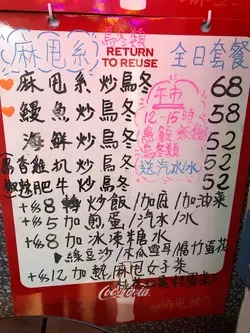 麻甩系
烏冬類
全日套餐
RETURN
TO REUSE
麻甩系炒烏冬 68
鰻魚炒烏冬 58
海鮮炒烏冬 52
蒜香雞扒炒烏冬 52
椒辣肥牛炒烏冬 52
午市
12-15時
烏冬類
送汽水/水
+$8 轉炒飯/加底/加油菜
+$5 加煎蛋/汽水/水
+$8 加冰凍糖水
綠豆沙/木瓜雪耳/腐竹蛋花
+$12 加
Coca-Cola